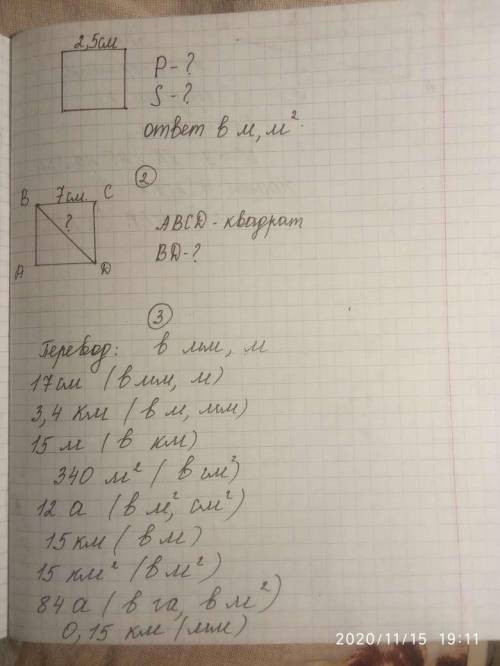 2,5см
P-?
S-?
ответ в м, м²
2
B 7см. C
?
A D
ABCD - квадрат
BD-?
3
Перевод: в мм, м
17см (в мм, м)
3,4 км (в м, мм)
15 м (в км)
340 м² (в см²)
12 а (в м², см²)
15 км (в м)
15 км² (в м²)
84 а (в га, в м²)
0,15 км (мм)
2020/11/15 19:11